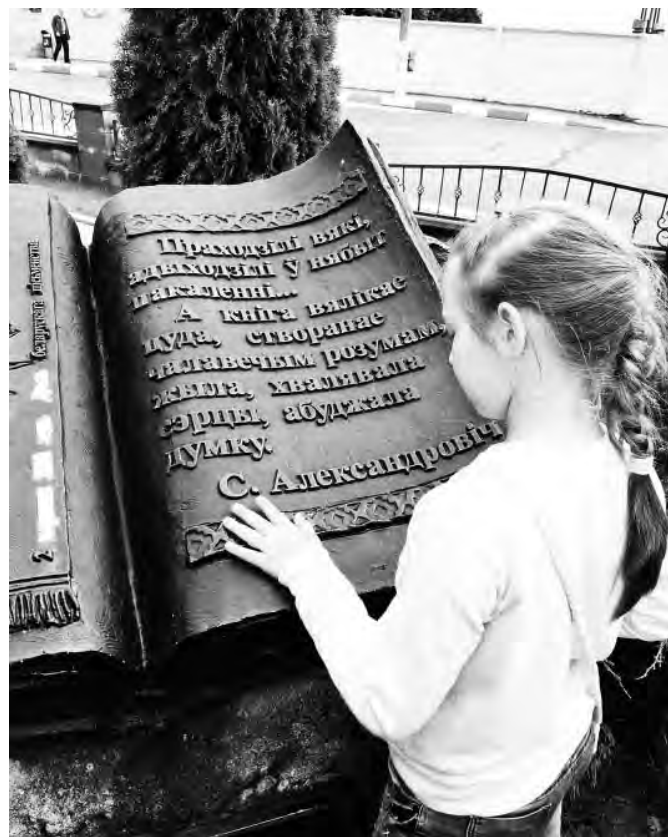 беларускага пісьменства
2
Праходзілі вякі,
адыходзілі ў нябыт
пакаленні...
А кніга вялікае
цуда, створанае
чалавечым розумам,
жыла, хвалявала
сэрцы, абуджала
думку.
С. Александровіч